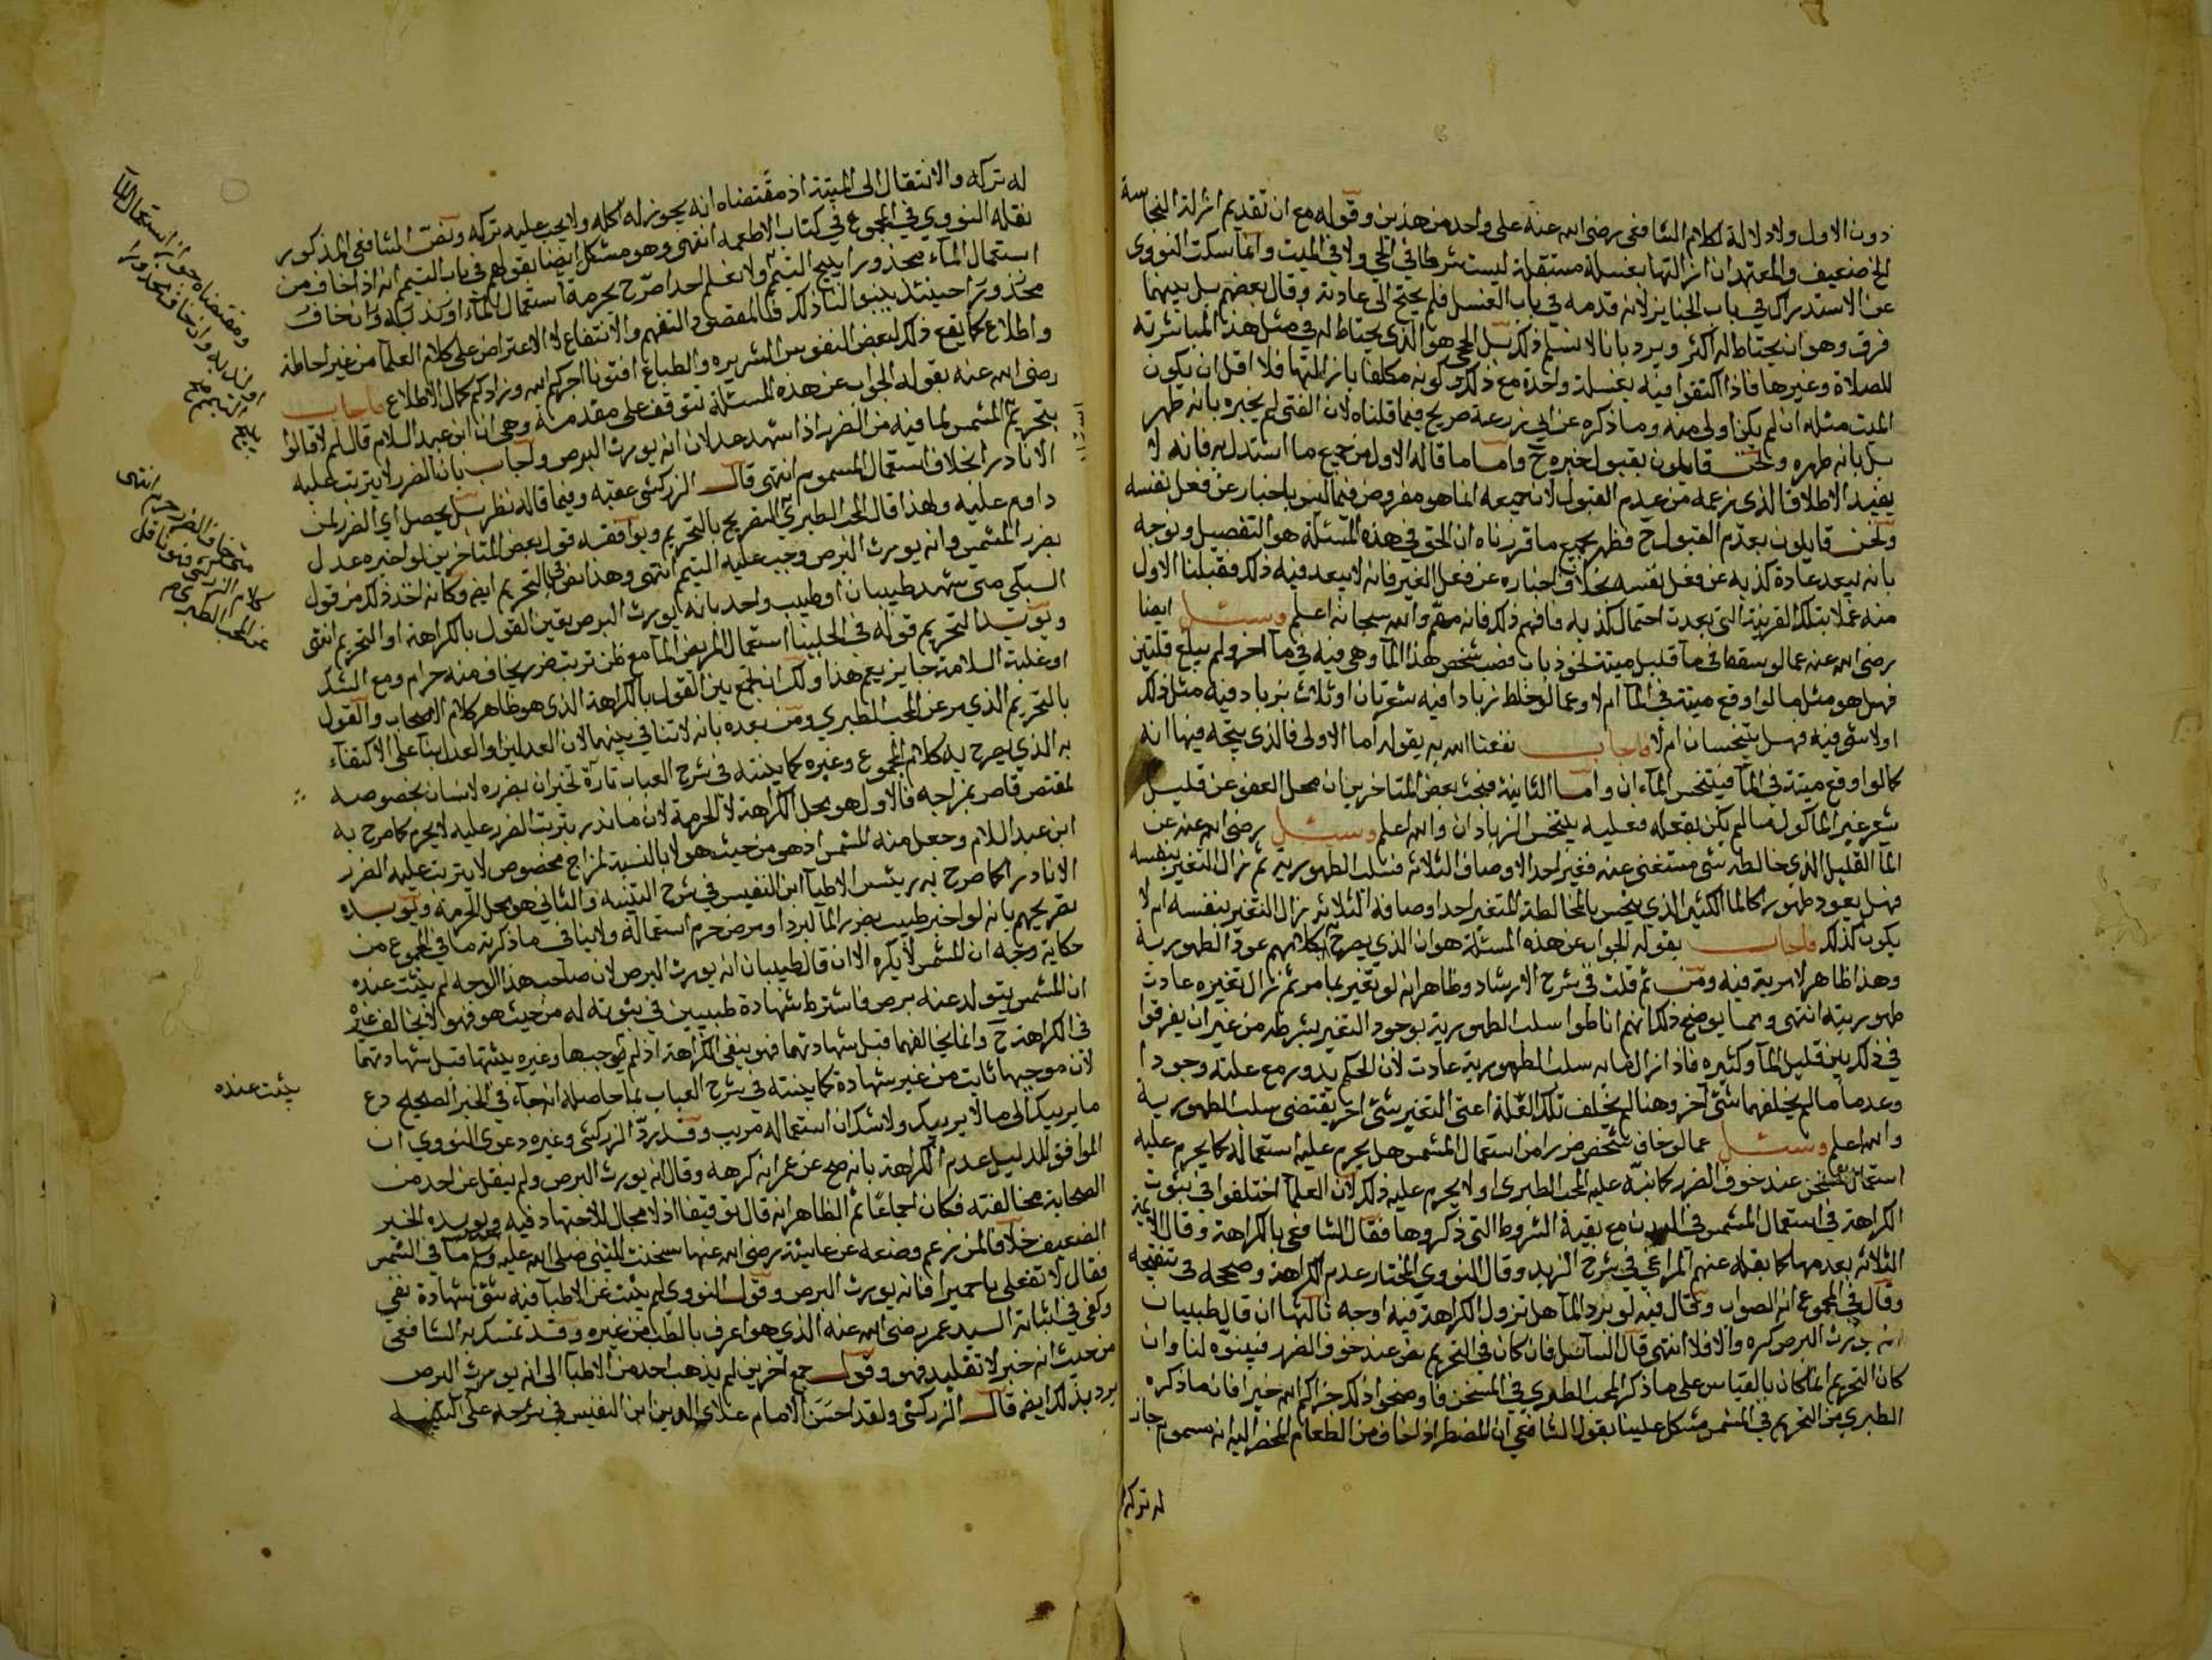 دون الاول ولا دلالة لكلام الشافعى رضى الله عنه على واحد من هذين وقوله مع ان تقديم ازالة النجاسة
الخ ضعيف والمعتمد ان ازالتها بغسلة مستقلة ليست شرطا في الحي ولا في الميت وانما سكت النووى
عن الاستدراك في باب الجنايز لانه قدمه في باب الغسل فلم يحتج الى عادته وقال بعضهم بل بينهما
فرق وهو ان يحتاط له اكثر ويرد بانا لا نسلم ذلك بل الحي هو الذى يحتاط له في مثل هذا لمباشرته
للصلاة وغيرها فاذا اكتفوا فيه بغسلة واحدة مع ذلك وكونه مكلفا بازالتها فلا اقل ان يكون
الميت مثله ان لم يكن اولى منه وما ذكره عن ابي زرعة صريح فيما قلناه لان الفتى لم يخبره بانه طهر
بل بانه طهره ونحن قايلون بقبول خبره ح واما ما قاله الاول من جميع ما استدل به فانه لا
يفيد الاطلاق الذى زعمه من عدم القبول لان جميعه انما هو مفروض فيما ليس باخبار عن فعل نفسه
ونحن قايلون بعدم القبول ح فظهر بجميع ما قررناه ان الحق في هذه المسئلة هو التفصيل ونوجه
بانه يبعد عادة كذبه عن فعل نفسه بخلاف اخباره عن فعل الغير فانه لا يبعد فيه ذلك فقبلنا الاول
منه عملا بتلك القرينة التى بعدت احتمال كذبه فافهم ذلك فانه مهم والله سبحانه اعلم وسئل ايضا
رضى الله عنه عما لو سقط في مآ قليل ميتة نحو ذباب فصب شخص هذا المآ وهى فيه في مآ اخر ولم يبلغ قلتين
فهل هو مثل ما لو اوقع ميتة في المآ ام لا وعما لو خلط زبادا فيه شعرتان او ثلاث بزباد فيه مثل ذلك
او لا شى فيه فهل يتنجسان ام لا فاجاب نفعنا الله به بقوله اما الاولى فالذى يتجه فيها انه
كما لو اوقع ميتة في المآ فيتنجس المآءان واما الثانية فبحث بعض المتاخرين ان محل العفو عن قليل
شعر غير الماكول ما لم يكن بفعله فعليه يتنجس الزبادان والله اعلم وسئل رضى الله عنه عن
المآ القليل الذى خالطه شى مستغنى عنه فغير احد الاوصاف الثلاثة فسلب الطهورية ثم زال التغير بنفسه
فهل يعود طهورا كالمآ الكثير الذى ينجس بالمخالطة المتغير احد اوصافه الثلاثة بزال التغير بنفسه ام لا
يكون كذلك فاجاب بقوله الجواب عن هذه المسئلة هو ان الذى يصرح به كلامهم عود الطهورية
وهذا ظاهر لا مرية فيه ومن ثم قلت في شرح الارشاد وظاهر انه لو تغير بما مر ثم زال تغيره عادت
طهوريته انتهى ومما يوضح ذلك انهم اناطوا سلب الطهورية بوجود التغير بشرطه من غير ان يفرقوا
في ذلك بين قليل المآ وكثيره فاذا زال ما به سلب الطهورية عادت لان الحكم يدور مع علته وجودا
وعدما ما لم يخلفها شئ آخر وهنا لم يخلف تلك العلة اعنى التغير شئ اخر يقتضى سلب الطهورية
والله اعلم وسئل عما لو خاف شخص ضررا من استعمال المشمس هل يحرم عليه استعماله كما يحرم عليه
استعمال المسخن عند خوف الضرر كما نبه عليه المحب الطبرى او لا يحرم عليه ذلك لان العلمآ اختلفوا في ثبوت
الكراهة في استعمال المشمس في البدن مع بقية الشروط التى ذكروها فقال الشافعى بالكراهة وقال الايمة
الثلاثة بعدمها كما نقله عنهم المراغى في شرح الزبد وقال النووى المختار عدم الكراهة وصححه في تنقيحه
وقال في المجموع انه الصواب وقال فيه لو برد المآ هل تزول الكراهة فيه اوجه ثالثها ان قال طبيبان
انه يورث البرص كره والا فلا انتهى قال السآئل فان كان في التحريم نص عند خوف الضرر فبينوه لنا وان
كان التحريم انما كان بالقياس على ما ذكر المحب الطبرى في المسخن فاوضحوا ذلك جزاكم الله خيرا فان ما ذكره
الطبرى من التحريم في المشمس مشكل علينا بقول الشافعى ان المضطر اذا خاف من الطعام المحضر اليه انه مسموم جاز
له تركه
له تركه والانتقال الى الميتة اذ مقتضاه انه يجوز له اكله ولا يجب عليه تركه ونص الشافعى المذكور
نقله النووى في المجموع في كتاب الاطعمة انتهى وهو مشكل ايضا بقولهم في باب التيمم انه اذا خاف من
استعمال المآء محذورا يبيح التيمم ولا نعلم احدا صرح بحرمة استعمال المآء او يندب له وان خاف
محذورا حينئذ بينوا لنا ذلك فالمقصود التفهم والانتفاع لا الاعتراض على كلام العلمآ من غير احاطة
واطلاع كما يقع ذلك لبعض النفوس الشريره والطباع افتونا اجركم الله وزادكم كمال الاطلاع فاجاب
رضى الله عنه بقوله الجواب عن هذه المسئلة يتوقف على مقدمة وهى ان ابن عبد السلام قال لم لا قالوا
بتحريم المشمس لما فيه من الضرر اذا شهد عدلان انه يورث البرص واجاب بان الضرر لا يترتب عليه
الا نادرا بخلاف استعمال المسموم انتهى قال الزركشى عقبه وفيما قاله نظر بل يحصل اى الضرر لمن
داوم عليه ولهذا قال المحب الطبرى التصريح بالتحريم ويوافقه قول بعض المتاخرين لو اخبره عدل
بضرر المشمس وانه يورث البرص وجب عليه التيمم انتهى وهذا نص في التحريم ايض وكانه اخذ ذلك من قول
السبكى متى شهد طبيبان او طبيب واحد بانه يورث البرص تعين القول بالكراهة او التحريم انتهى
ويؤيد التحريم قوله في الحلبيات استعمال المريض المآ مع ظن ترتب ضرر يخاف منه حرام ومع الشك
او غلبة السلامة جايز نعم هذا ولك ان تجمع بين القول بالكراهة الذى هو ظاهر كلام الاصحاب والقول
بالتحريم الذى مر عن المحب الطبرى ومن بعده بانه لا تنافي بينهما لان العدلين او العدل بنآ على الاكتفآء
به الذى يصرح به كلام المجموع وغيره كما بينته في شرح العباب تارة تخبران بضرره لانسان بخصوصه
لمقتض قام بمزاجه فالاول هو محل الكراهة لا الحرمة لان ما ندر ترتب الضرر عليه لا يحرم كما صرح به
ابن عبد السلام وجعل منه المشمس اذ هو من حيث هو لا بالنسبة لمزاج مخصوص لا يترتب عليه الضرر
الا نادرا كما صرح به رئيس الاطبآ ابن النفيس في شرح التنبيه والثانى هو محل الحرمة ويؤيده
تصريحهم بانه لو اخبر طبيب بضرر المآ لبرد او مرض حرم استعماله ولا ينافي ما ذكرته ما في المجموع من
حكاية وجه ان المشمس لا يكره الا ان قال طبيبان انه يورث البرص لان صاحب هذا الوجه لم يثبت عنده
ان المشمس يتولد عنه برص فاشترط شهادة طبيبين في ثبوته له من حيث هو فهو لا يخالف غيره
في الكراهة ح وانما يخالفهما قبل شهادتهما فهو ينفى الكراهة اذ لم يثبت موجبها وغيره يثبتها قبل شهادتهما
لان موجبها ثابت من غير شهادة كما بينته في شرح العباب بما حاصله انه جآء في الخبر الصحيح دع
ما يريبك الى ما لا يريبك ولا شك ان استعماله مريب وقد رد الزركشى وغيره دعوى النووى ان
الموافق للدليل عدم الكراهة بانه صح عن عمر انه كرهه وقال انه يورث البرص ولم ينقل عن احد من
الصحابة مخالفته فكان اجماعا ثم الظاهر انه قال توقيفا اذ لا مجال للاجتهاد فيه ويؤيده الخبر
الضعيف خلافا لمن زعم وضعه عن عايشة رضى الله عنها سخنت للنبى صلى الله عليه وسلم مآ في الشمس
فقال لا تفعلى يا حميرا فانه يورث البرص وقول النووى لم يثبت عن الاطبآ فيه شئ شهادة نفى
وكفى في اثباته السيد عمر رضى الله عنه الذى هو اعرف بالطب من غيره وقد تمسك به الشافعى
من حيث انه خبر لا تقليد فهو وقول جمع اخرين لم يذهب احد من الاطبآ الى انه يورث البرص
يرد بذلك ايض قال الزركشى ولقد احسن الامام علاى الدين ابن النفيس في شرحه على التنبيه
ومقتضاه جواز استعمال المآ
وان خاف محذورا
يبيح التيمم
متى خاف الضرر حرم انتهى
كلام الزركشى فهو ناقل
عن المحب الطبرى
يثبت عنده